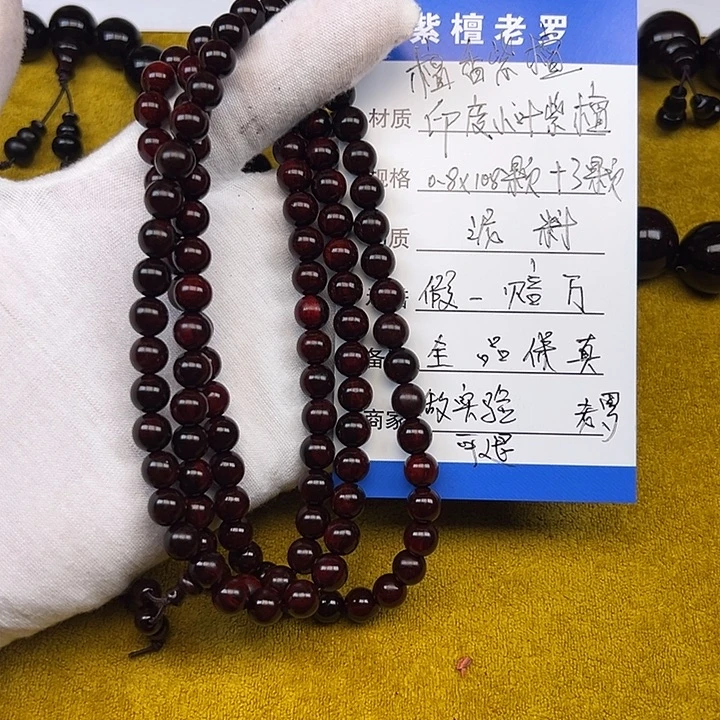 紫檀老罗
檀香紫檀
材质 印度小叶紫檀
规格 0.8x108颗+3颗
质 泥料
假一赔万
备 全品保真
商家 做实验 老罗
可退